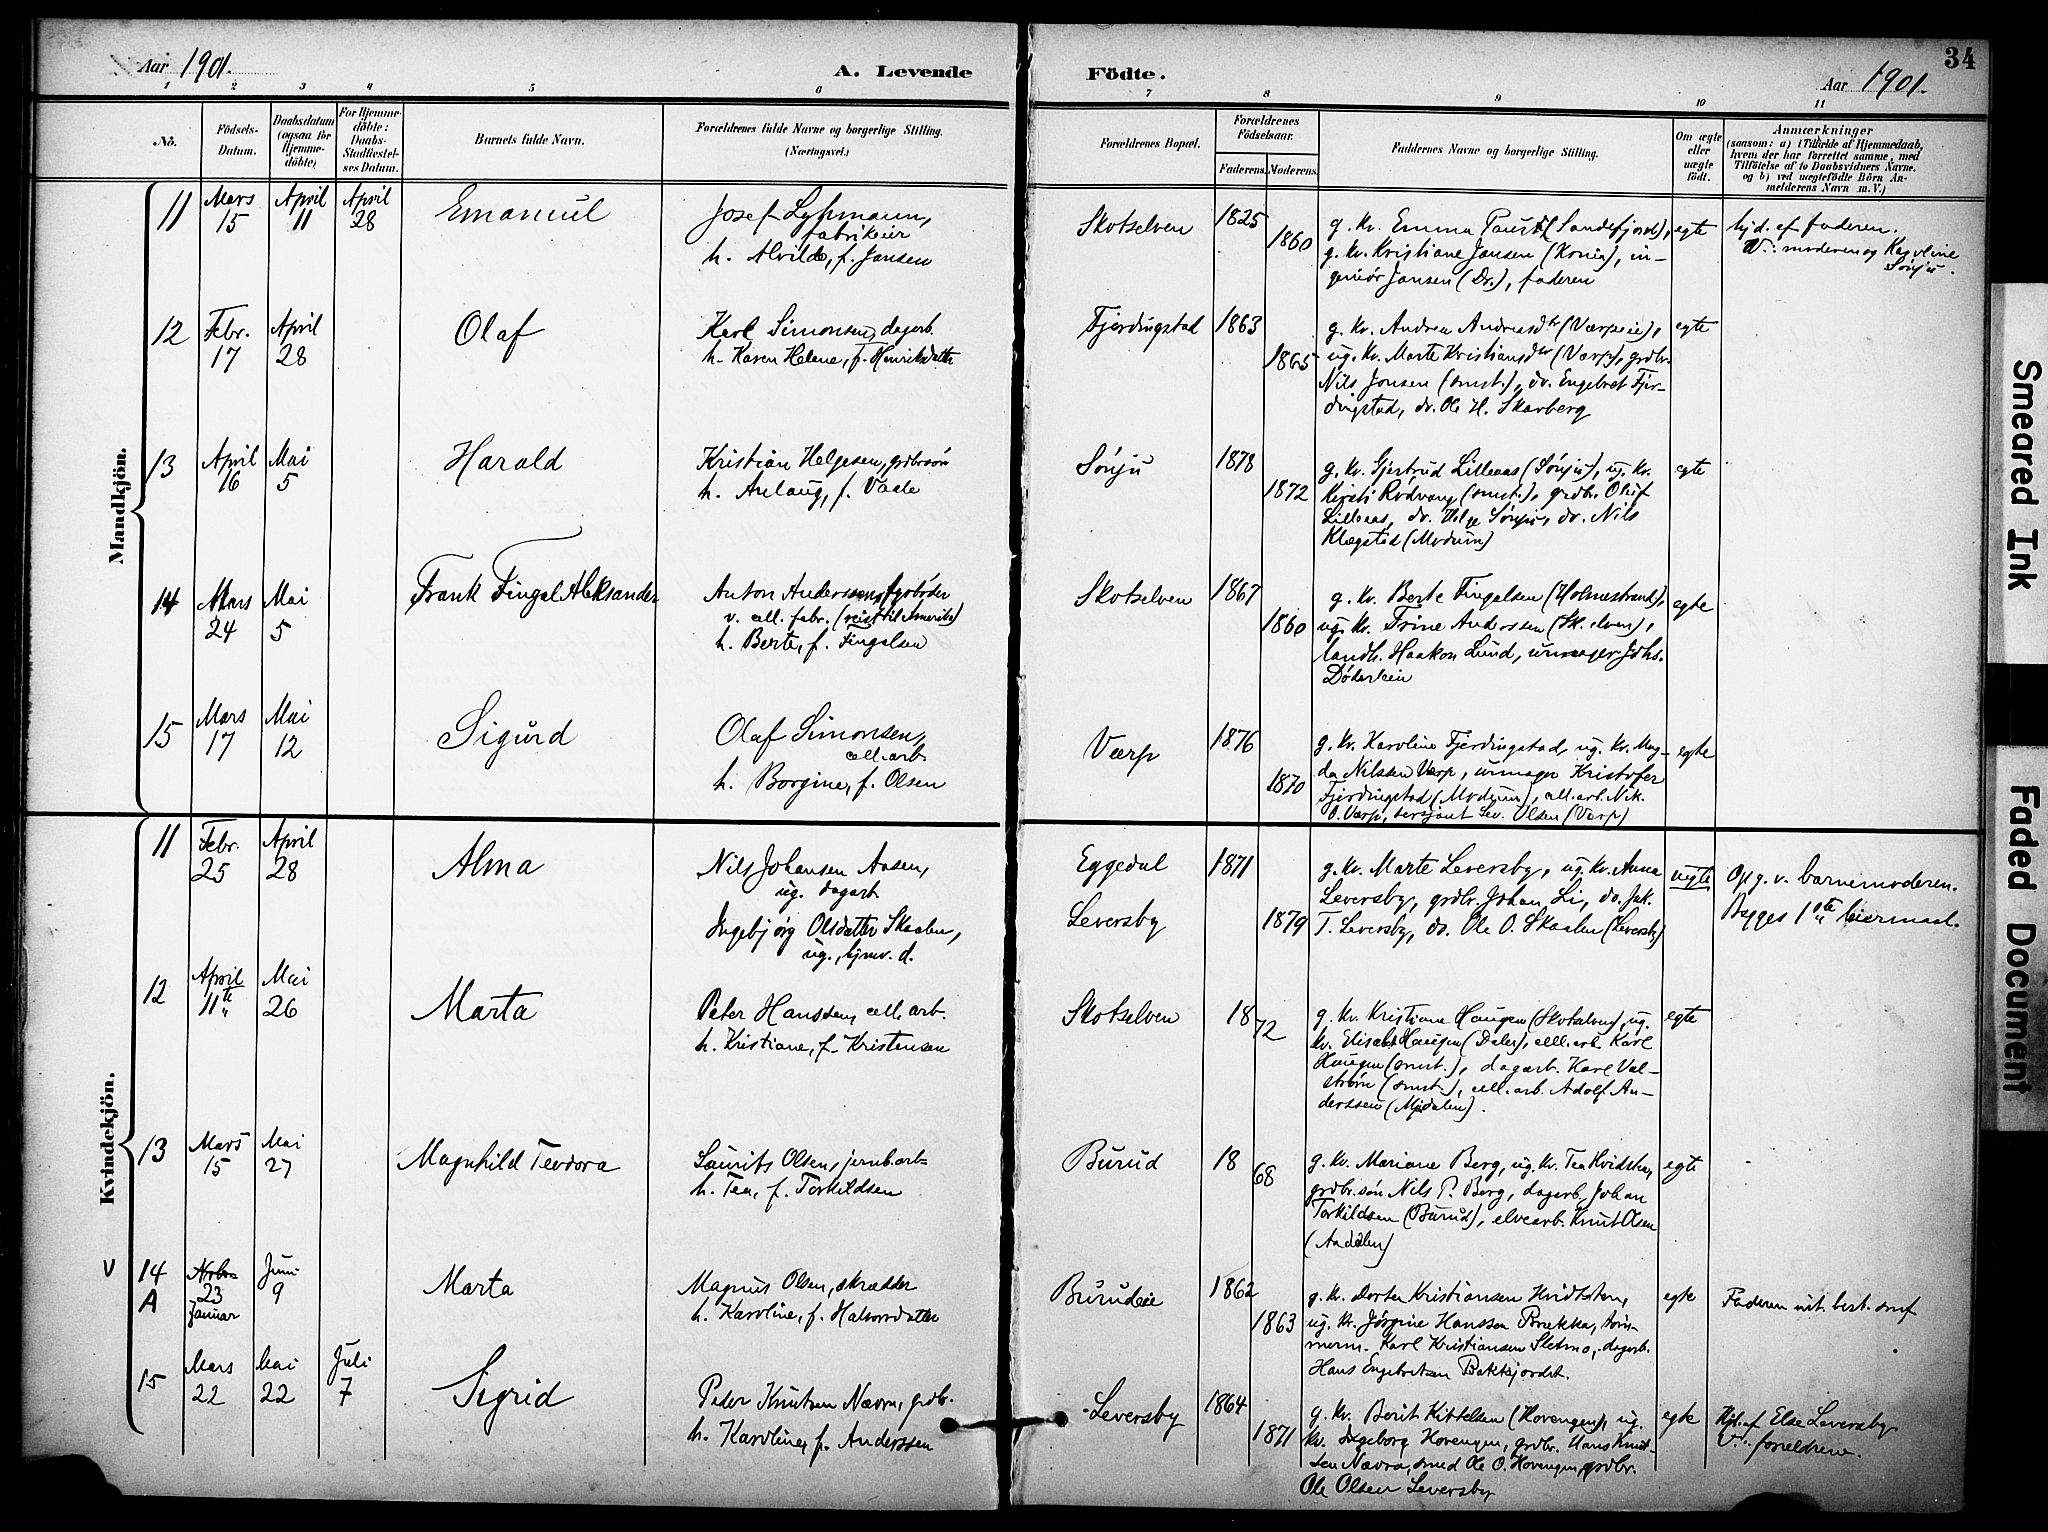 Aar 1901.
A. Levende
Födte.
Aar 1901.
34
1 2 3 4 5 6 7 8 9 10 11
No.
Födsels-
Datum.
Daabsdatum
(ogsaa for
Hjemme-
döbte)
For Hjemme-
döbte:
Daabs-
Stadfæstel-
ses Datum.
Barnets fulde Navn.
Forældrenes fulde Navne og borgerlige Stilling.
(Næringsvei.)
Forældrenes Bopæl.
Forældrenes
Födselsaar.
Faderens. Moderens.
Faddernes Navne og borgerlige Stilling.
Om ægte
eller
uægte
födt.
Anmærkninger
(saasom: a) i Tilfælde af Hjemmedaab,
hvem der har forrettet samme, med
Tilföielse af to Daabsvidners Navne.
og b) ved uægtefödte Börn An-
melderens Navn m. V.)
Mandkjön.
11
Mars
15
April
11
April
28
Emanuel
Josef Lyhmann,
fabrikeier
h. Alvilde, f. Jansen
Skotselven
1825
1860
g. kv. Emma Paust (Sandefjord),
g. kv. Kristiane Jansen (Kria), in-
geniør Jansen (Dr.), faderen
egte
hjd. af faderen.
V.: moderen og Karoline
Sønju.
12
Febr.
17
April
28
Olaf
Karl Simonsen, dagarb.
h. Karen Helene, f. Henriksdatter
Fjerdingstad
1863
1865
g. kv. Andrea Andreasdtr (Værpeie),
ug. kv. Marte Kristiansdtr (Værp), grdbr.
Nils Jonsen (smst.), do. Engebret Fjer-
dingstad, do. Ole H. Skarberg
egte
13
April
16
Mai
5
Harald
Kristian Helgesen, grdbrsøn
h. Anlaug, f. Vaale
Sønju
1878
1872
g. kv. Gjertrud Lilleaas (Sønju), ug. kv.
Kirsti Rødvang (smst.), grdbr. Oluf
Lilleaas, do. Helge Sønju, do. Nils
Klægstad (Modum)
egte
14
Mars
24
Mai
5
Frank Fingal Aleksander
Anton Anderssen, fyrbøder
v. cell. fabr. (reist til Amerika)
h. Berte, f. Fingalsen
Skotselven
1867
1860
g. kv. Berte Fingalsen (Holmestrand),
ug. kv. Trine Anderssen (Sk.elven),
landh. Haakon Lund, urmager Johs.
Døderlein
egte
15
Mars
17
Mai
12
Sigurd
Olaf Simonsen,
cell. arb.
h. Borgine, f. Olsen
Værp
1876
1870
g. kv. Karoline Fjerdingstad, ug. kv. Mag-
da Nilssen Værp, urmager Kristofer
Fjerdingstad (Modum), cell. arb. Nik.
O. Værp, sersjant Sev. Olsen (Værp)
egte
Kvindekjön.
11
Febr.
25
April
28
Alma
Nils Johansen Aasen,
ug. dagarb.
Ingebjørg Olsdatter Skaalen,
ug., hjmv. d.
Eggedal
Leversby
1871
1879
g. kv. Marte Leversby, ug. kv. Anna
Leversby, grdbr. Johan Li, do. Jak.
T. Leversby, do. Ole O. Skaalen (Leversby)
uegte
Opg. v. barnemoderen.
Begges 1ste leiermaal.
12
April
11te
Mai
26
Marta
Peter Hanssen, cell. arb.
h. Kristiane, f. Kristensen
Skotselven
18
72
g. kv. Kristiane Haugen (Skotselven), ug.
kv. Elisabet Haugen (Dalen), cell. arb. Karl
Haugen (smst.), dagarb. Karl Val-
strøm (smst.), cell. arb. Adolf An-
derssen (Mjødalen).
egte
13
Mars
15
Mai
27
Magnhild Teodora
Laurits Olsen, jernb.arb.
h. Tea, f. Torkildsen
Burud
18
68
g. kv. Mariane Berg, ug. kv. Tea Hvidsten,
grdbr.søn Nils P. Berg, dagarb. Johan
Torkildsen (Burud), elvearb. Knut Olsen
(Aadalen)
egte
V
14
A
23
Januar
Juni
9
Marta
Magnus Olsen, skrædder
h. Karoline, f. Halvorsdatter
Burudeie
1862
1863
g. kv. Dortea Kristiansen Hvidsten,
ug. kv. Jørgine Hanssen Brekka, tøm-
merm. Karl Kristiansen Sletmo, dagarb.
Hans Engebretsen Bakkejordet.
egte
Faderen
15
Mars
22
Mai
22
Juli
7
Sigrid
Peder Knutsen Nævra, grdbr.
h. Karoline, f. Anderssen
Leversby
1864
1871
g. kv. Berit Kittelsen (Hovengen), ug.
kv. Ingeborg Hovengen, grdbr. Hans Knut-
sen Nævra, smed Ole O. Hovengen, grdbr.
Ole Olsen Leversby
egte
Hjd. af Else Leversby
V.: forældrene.
Smeared Ink
Faded Document